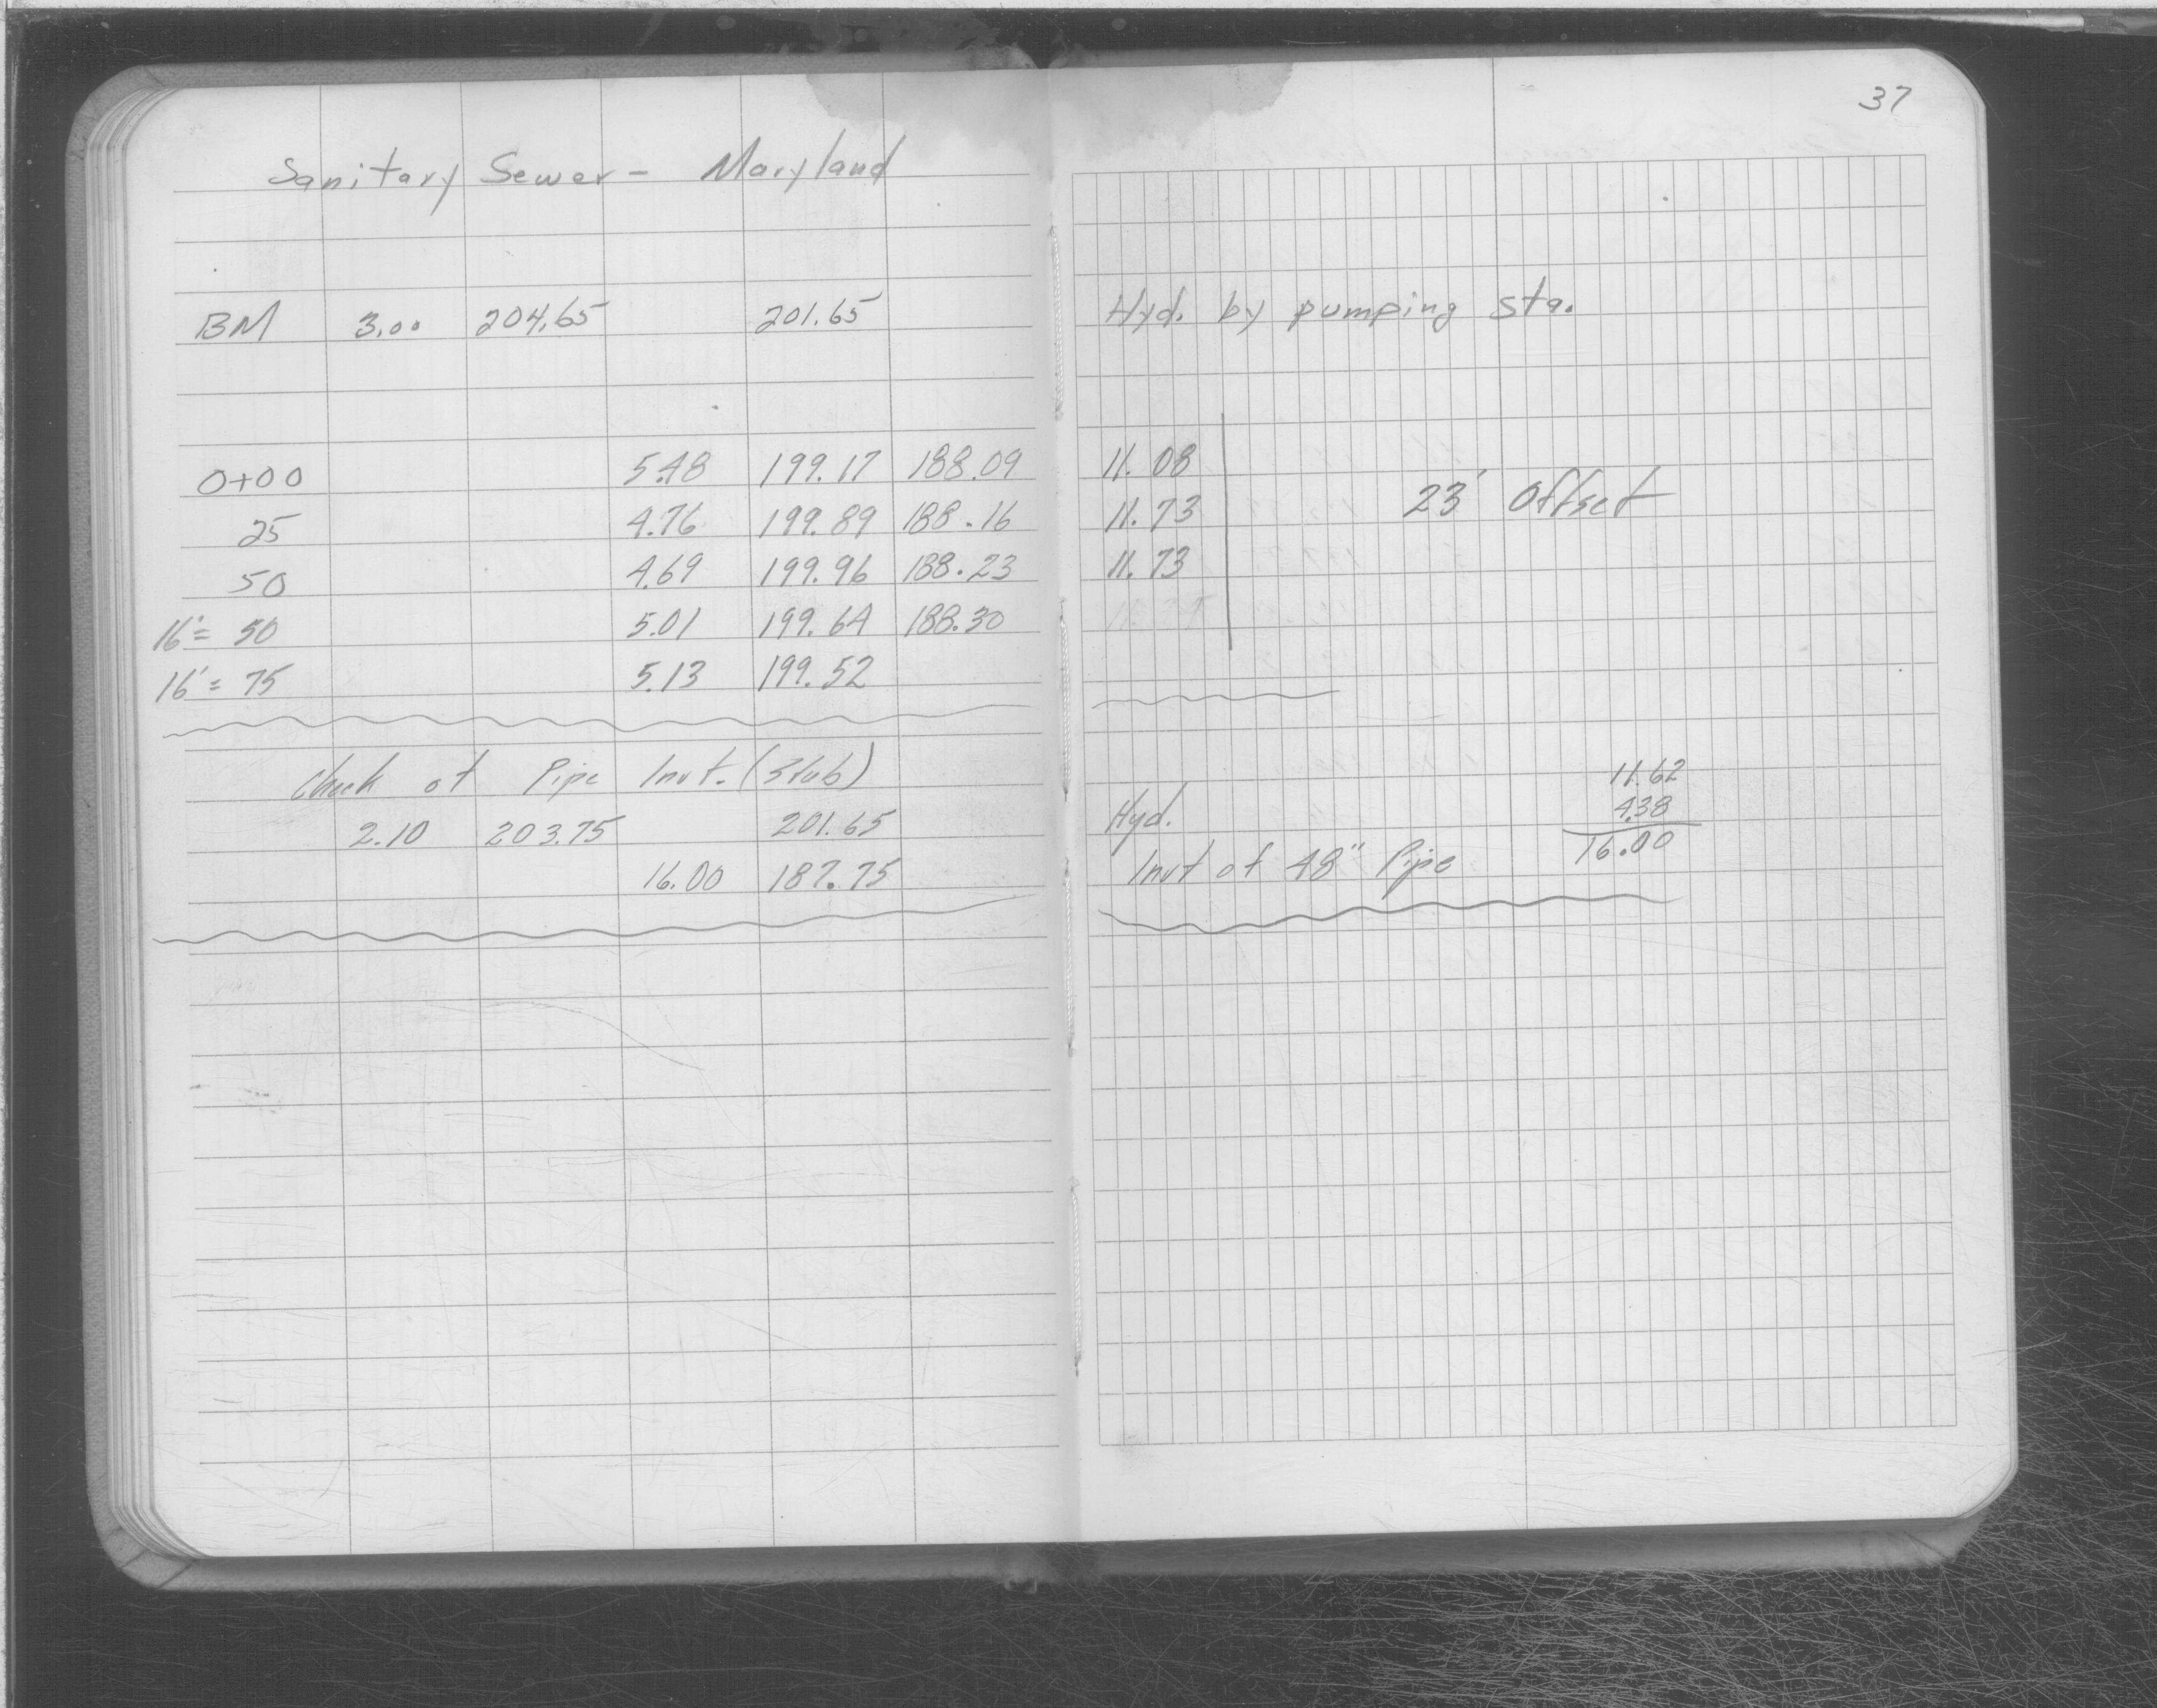 37
Sanitary Sewer - Maryland
BM 3.00 204.65 201.65 Hyd. by pumping sta.
0+00 5.48 199.17 188.09 11.08
25 4.76 199.89 188.16 11.73 23' Offset
50 4.69 199.96 188.23 11.73
16'= 50 5.01 199.64 188.30
16'= 75 5.13 199.52
Check of Pipe Invt. (Stub) 11.62
2.10 203.75 201.65 Hyd. 4.38
16.00 187.75 Invt of 48" Pipe 16.00